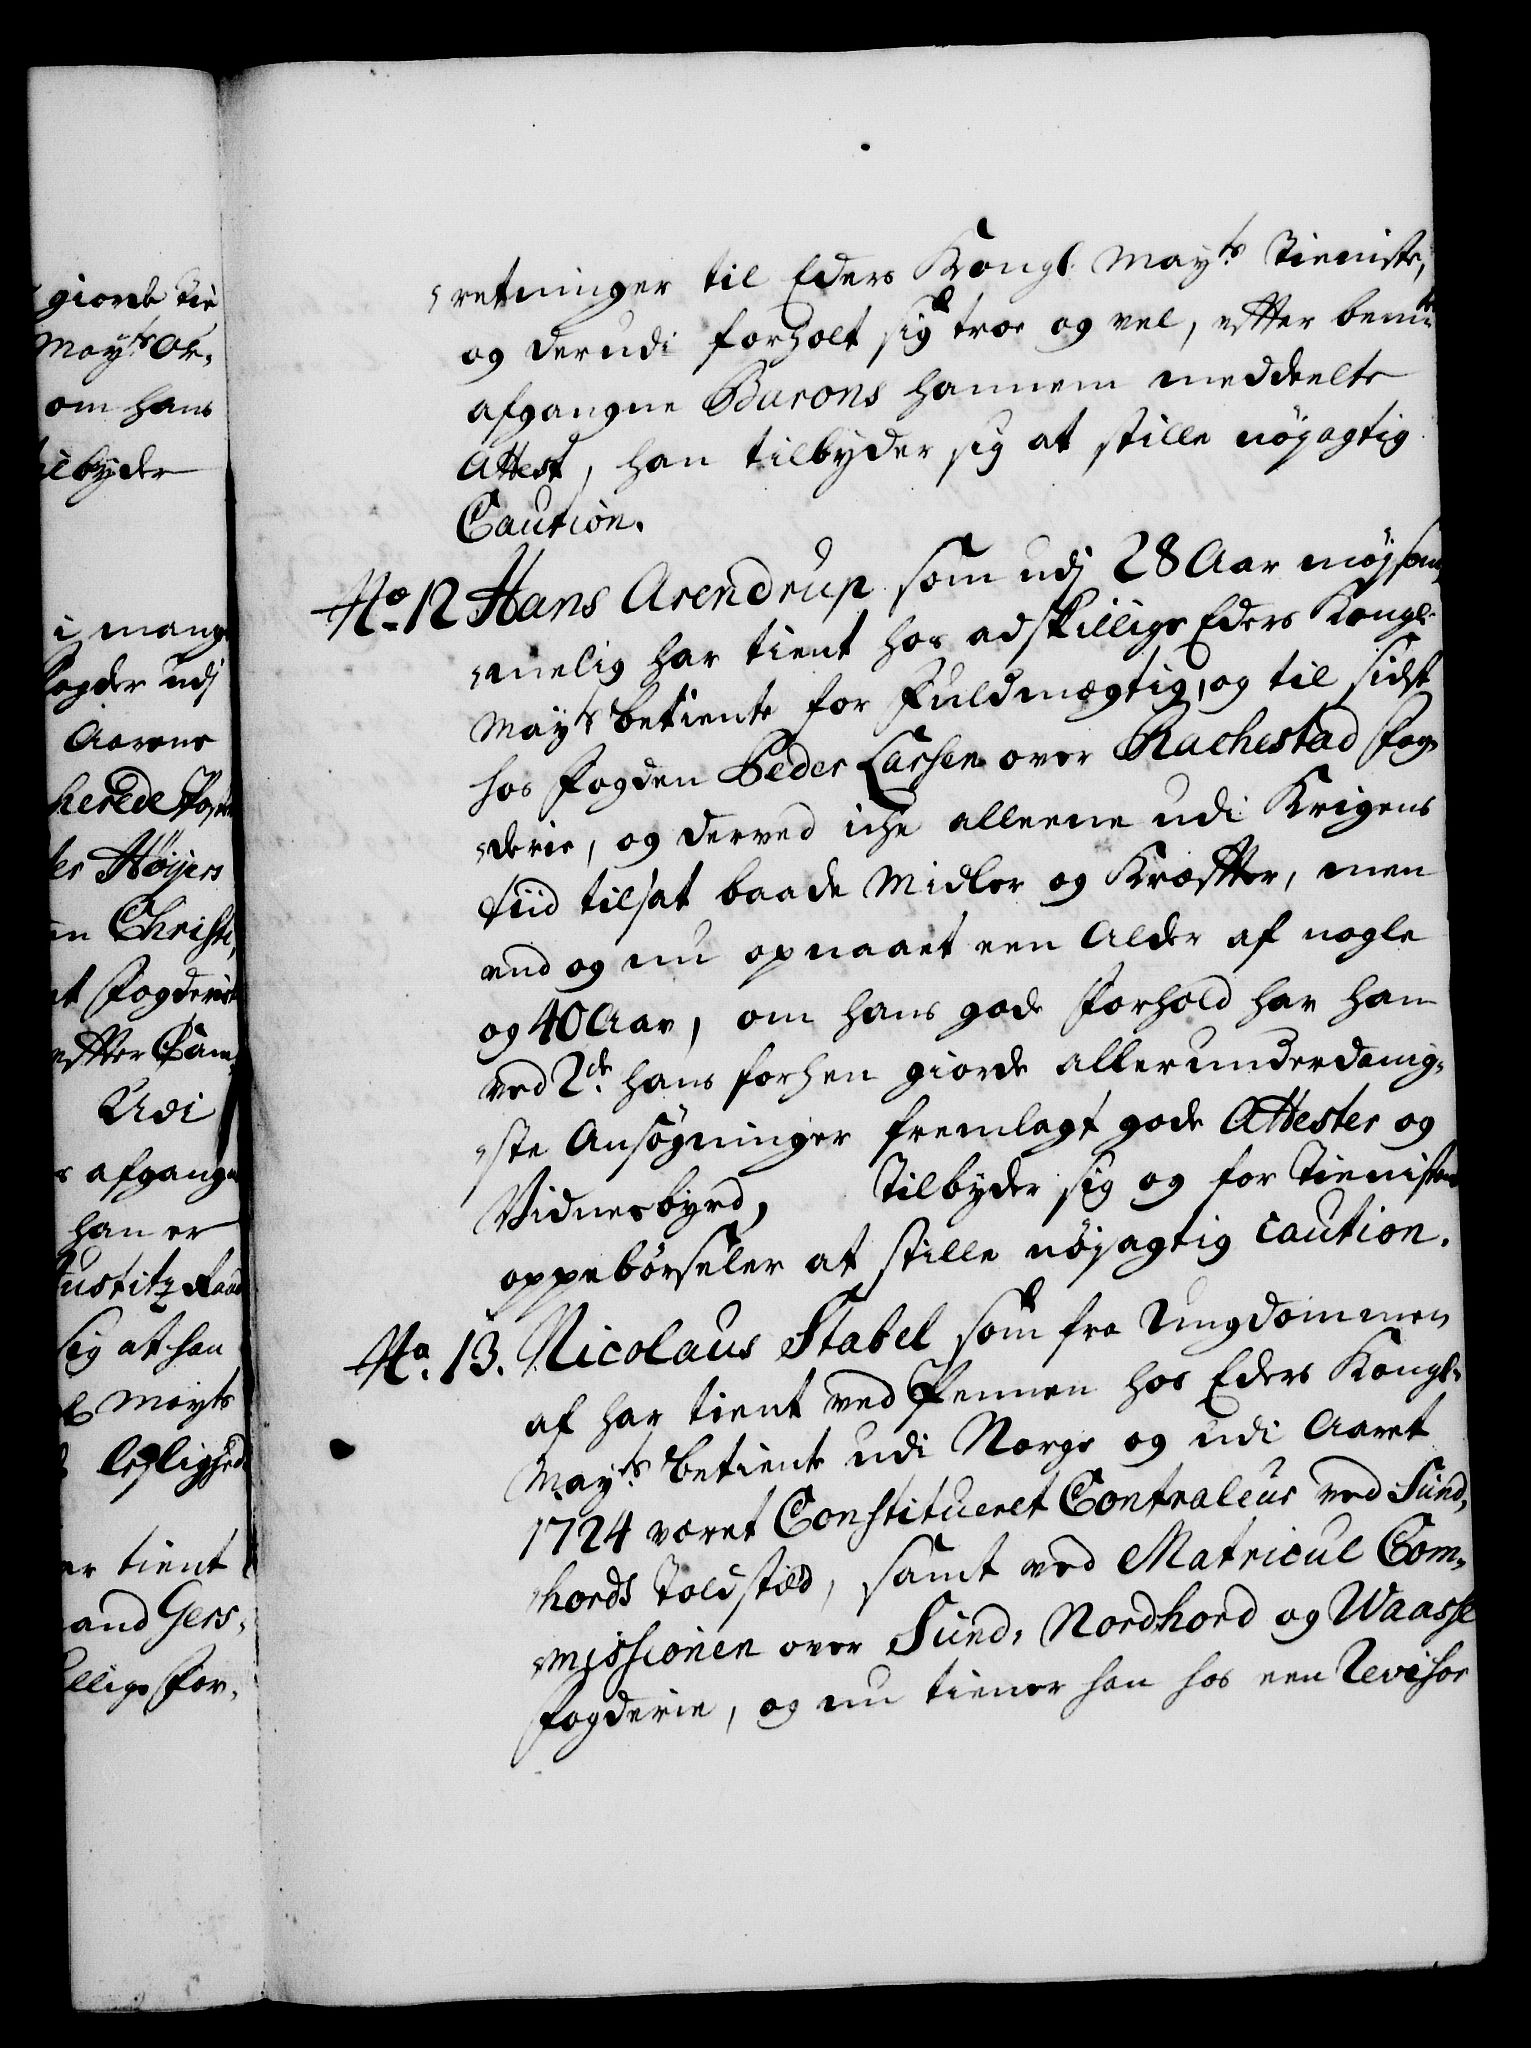 giorde tie
Mayts Ok,
om hans
ilbyder
i mange
fogder udj
Aarene
herede fog
ler Høyers
en Christi,
nt fogderie
efter Cam,
Udi
s afgangne
han er
Justitz Raad
sig at han
Mayts
lejlighed
er tient
and Gers,
illige for,
„retninger til Eders Kongl. Mayts Tieniste,
og derudi forholt sig troe og vel, efter bemte
afgangne Barons hannem meddeelte
Attest, han tilbyder sig at stille nøyagtig
Caution.
No. 12 Hans Arendrup som udj 28 Aar møysom,
„melig har tient hos adskillige Eders Kongl.
Mayts betiente for Fuldmægtig, og til sidst
hos fogden Peder Larsen over Rachestad fog,
„derie, og derved iche alleene udi Krigens
tiid tilsat baade Midler og Kræfter, men
end og nu opnaaet een Alder af nogle
og 40 Aar, om hans gode forhold har han
ved 2de hans forhen giorde allerunderdanig,
„ste Ansøgninger fremlagt gode Attester og
Vidnesbyrd, Tilbyder sig og for Tienisten
oppebørseler at stille nøyagtig Caution.
No. 13. Nicolaus Stabel som fra Ungdommen
af har tient ved Pennen hos Eders Kongl.
Mayts betiente udi Norge og udi Aaret
1724 været Constitueret Contraleur ved Sund,
„hords Toldsted, samt ved Matricul Com,
„missionen over Sund, Nordhord og Waasse
fogderie, og nu tiener han hos een Revisor